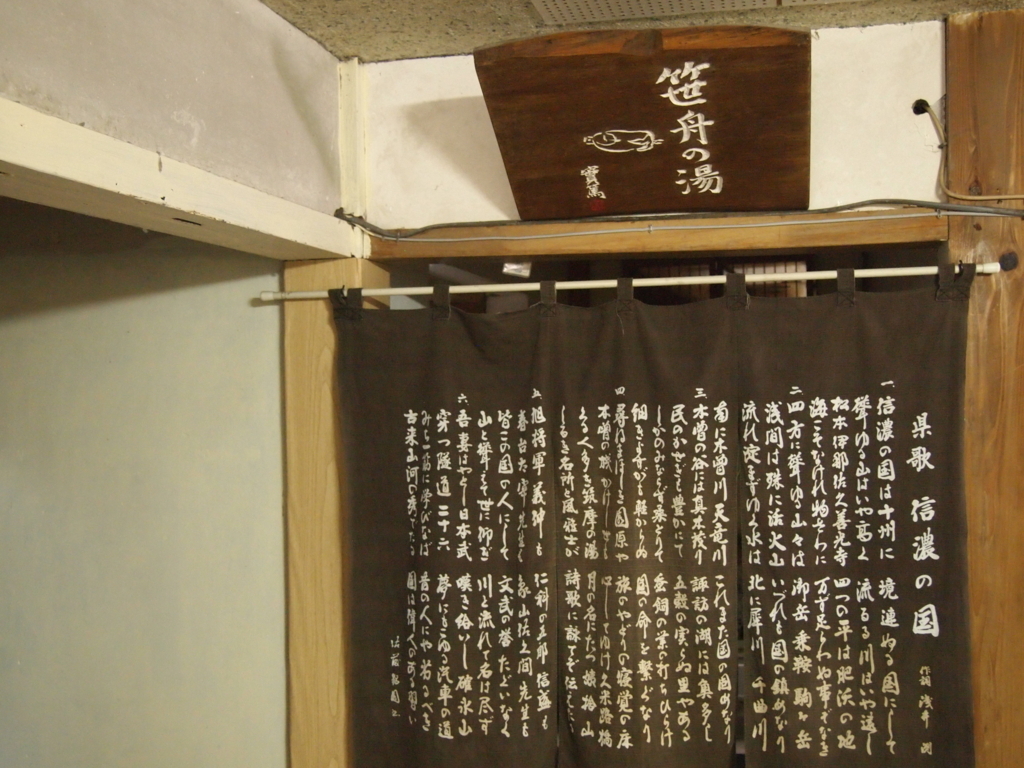 笹舟の湯
県歌 信濃の国
作詞 浅井 洌
一 信濃の国は十州に 境連ぬる国にして
聳ゆる山はいや高く 流るる川はいや遠し
松本伊那佐久善光寺 四つの平は肥沃の地
海こそなけれ物さわに 万ず足らわぬ事ぞなき
二 四方に聳ゆる山々は 御岳乗鞍駒ヶ岳
浅間は殊に活火山 いづれも国の鎮めなり
流れ淀まずゆく水は 北に犀川千曲川
南に木曽川天竜川 これまた国の固めなり
三 木曽の谷には真木茂り 諏訪の湖には魚多し
民のかせぎも豊かにて 五穀の実らぬ里やある
しかのみならず桑とりて 蚕飼の業の打ちひらけ
細きよすがも軽からぬ 国の命を繋ぐなり
四 尋ねまほしき園原や 旅のやどりの寝覚の床
木曽の桟かけし世も 心してゆけ久米路橋
くる人多き筑摩の湯 月の名にたつ姨捨山
しるき名所と風雅士が 詩歌に詠てぞ伝えたる
五 旭将軍義仲も 仁科の五郎信盛も
春台太宰先生も 象山佐久間先生も
皆この国の人にして 文武の誉たぐいなく
山と聳えて世に仰ぎ 川と流れて名は尽ず
六 吾妻はやとし日本武 嘆き給いし碓氷山
穿つ隧道二十六 夢にもこゆる汽車の道
みち一筋に学びなば 昔の人にや劣るべき
古来山河の秀でたる 国は偉人のある習い